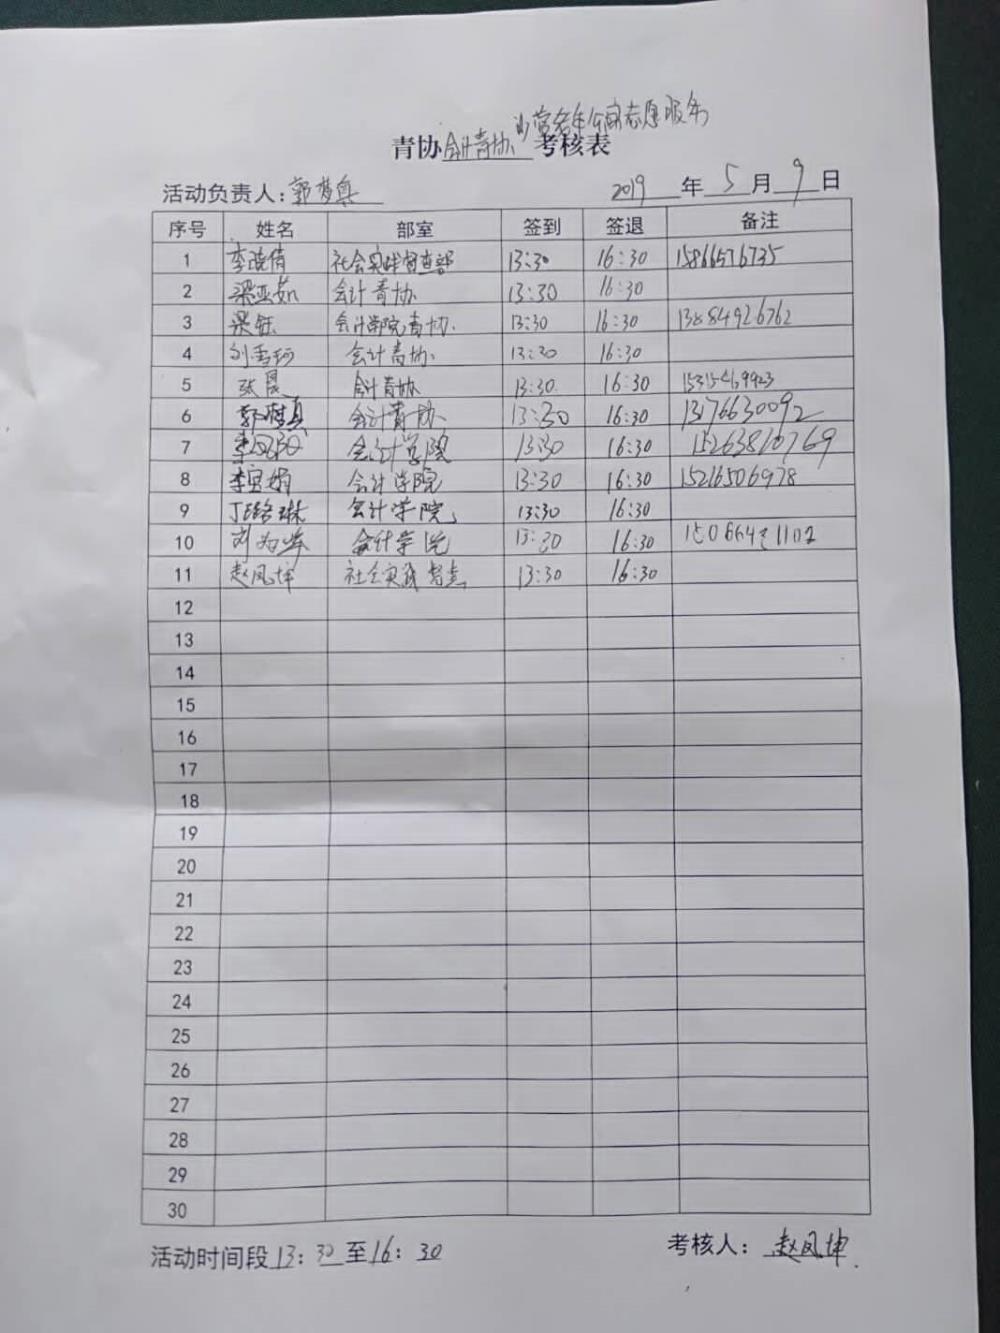 老年公寓志愿服务
青协会计青协考核表
活动负责人:郭梦真 2019年5月9日
序号 姓名 部室 签到 签退 备注
1 李晓倩 社会实践督查部 13:30 16:30 15866576735
2 梁亚茹 会计青协 13:30 16:30
3 梁钰 会计学院青协. 13:30 16:30 13884926762
4 会计青协. 13:30 16:30
5 张晨 会计青协 13:30 16:30 15315469923
6 郭梦真 会计青协. 13:30 16:30 13176630092
7 会计学院 13:30 16:30 15263810769
8 会计学院 13:30 16:30 15216506978
9 会计学院 13:30 16:30
10 会计学院 13:30 16:30
11 赵凤坤 社会实践督查 13:30 16:30
12
13
14
15
16
17
18
19
20
21
22
23
24
25
26
27
28
29
30
活动时间段13:30至16:30 考核人:赵凤坤.